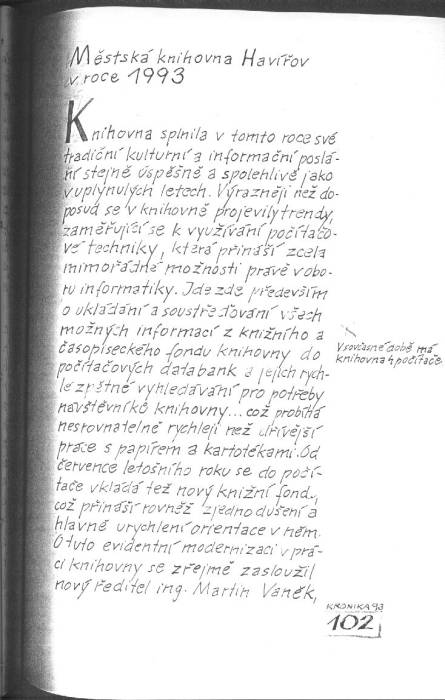 Městská knihovna Havířov
v roce 1993
Knihovna splnila v tomto roce své
tradiční kulturní a informační poslá-
ní stejně úspěšně a spolehlivě jako
v uplynulých letech. Výrazněji než do-
posud se v knihovně projevily trendy,
zaměřující se k využívání počítačo-
vé techniky, která přináší zcela
mimořádné možnosti právě v obo-
ru informatiky. Jde zde především
o ukládání a soustřeďování všech
možných informací z knižního a
časopiseckého fondu knihovny do
počítačových databank a jejich rych-
lé zpětné vyhledávání pro potřeby
návštěvníků knihovny... což probíhá
nesrovnatelně rychleji než dřívější
práce s papírem a kartotékami. Od
července letošního roku se do počí-
tače vkládá též nový knižní fond,
což přináší rovněž zjednodušení a
hlavně urychlení orientace v něm.
O tuto evidentní modernizaci v prá-
ci knihovny se zřejmě zasloužil
nový ředitel ing. Martin Vaněk,
V současné době má
knihovna 4 počítače.
KRONIKA 93
102